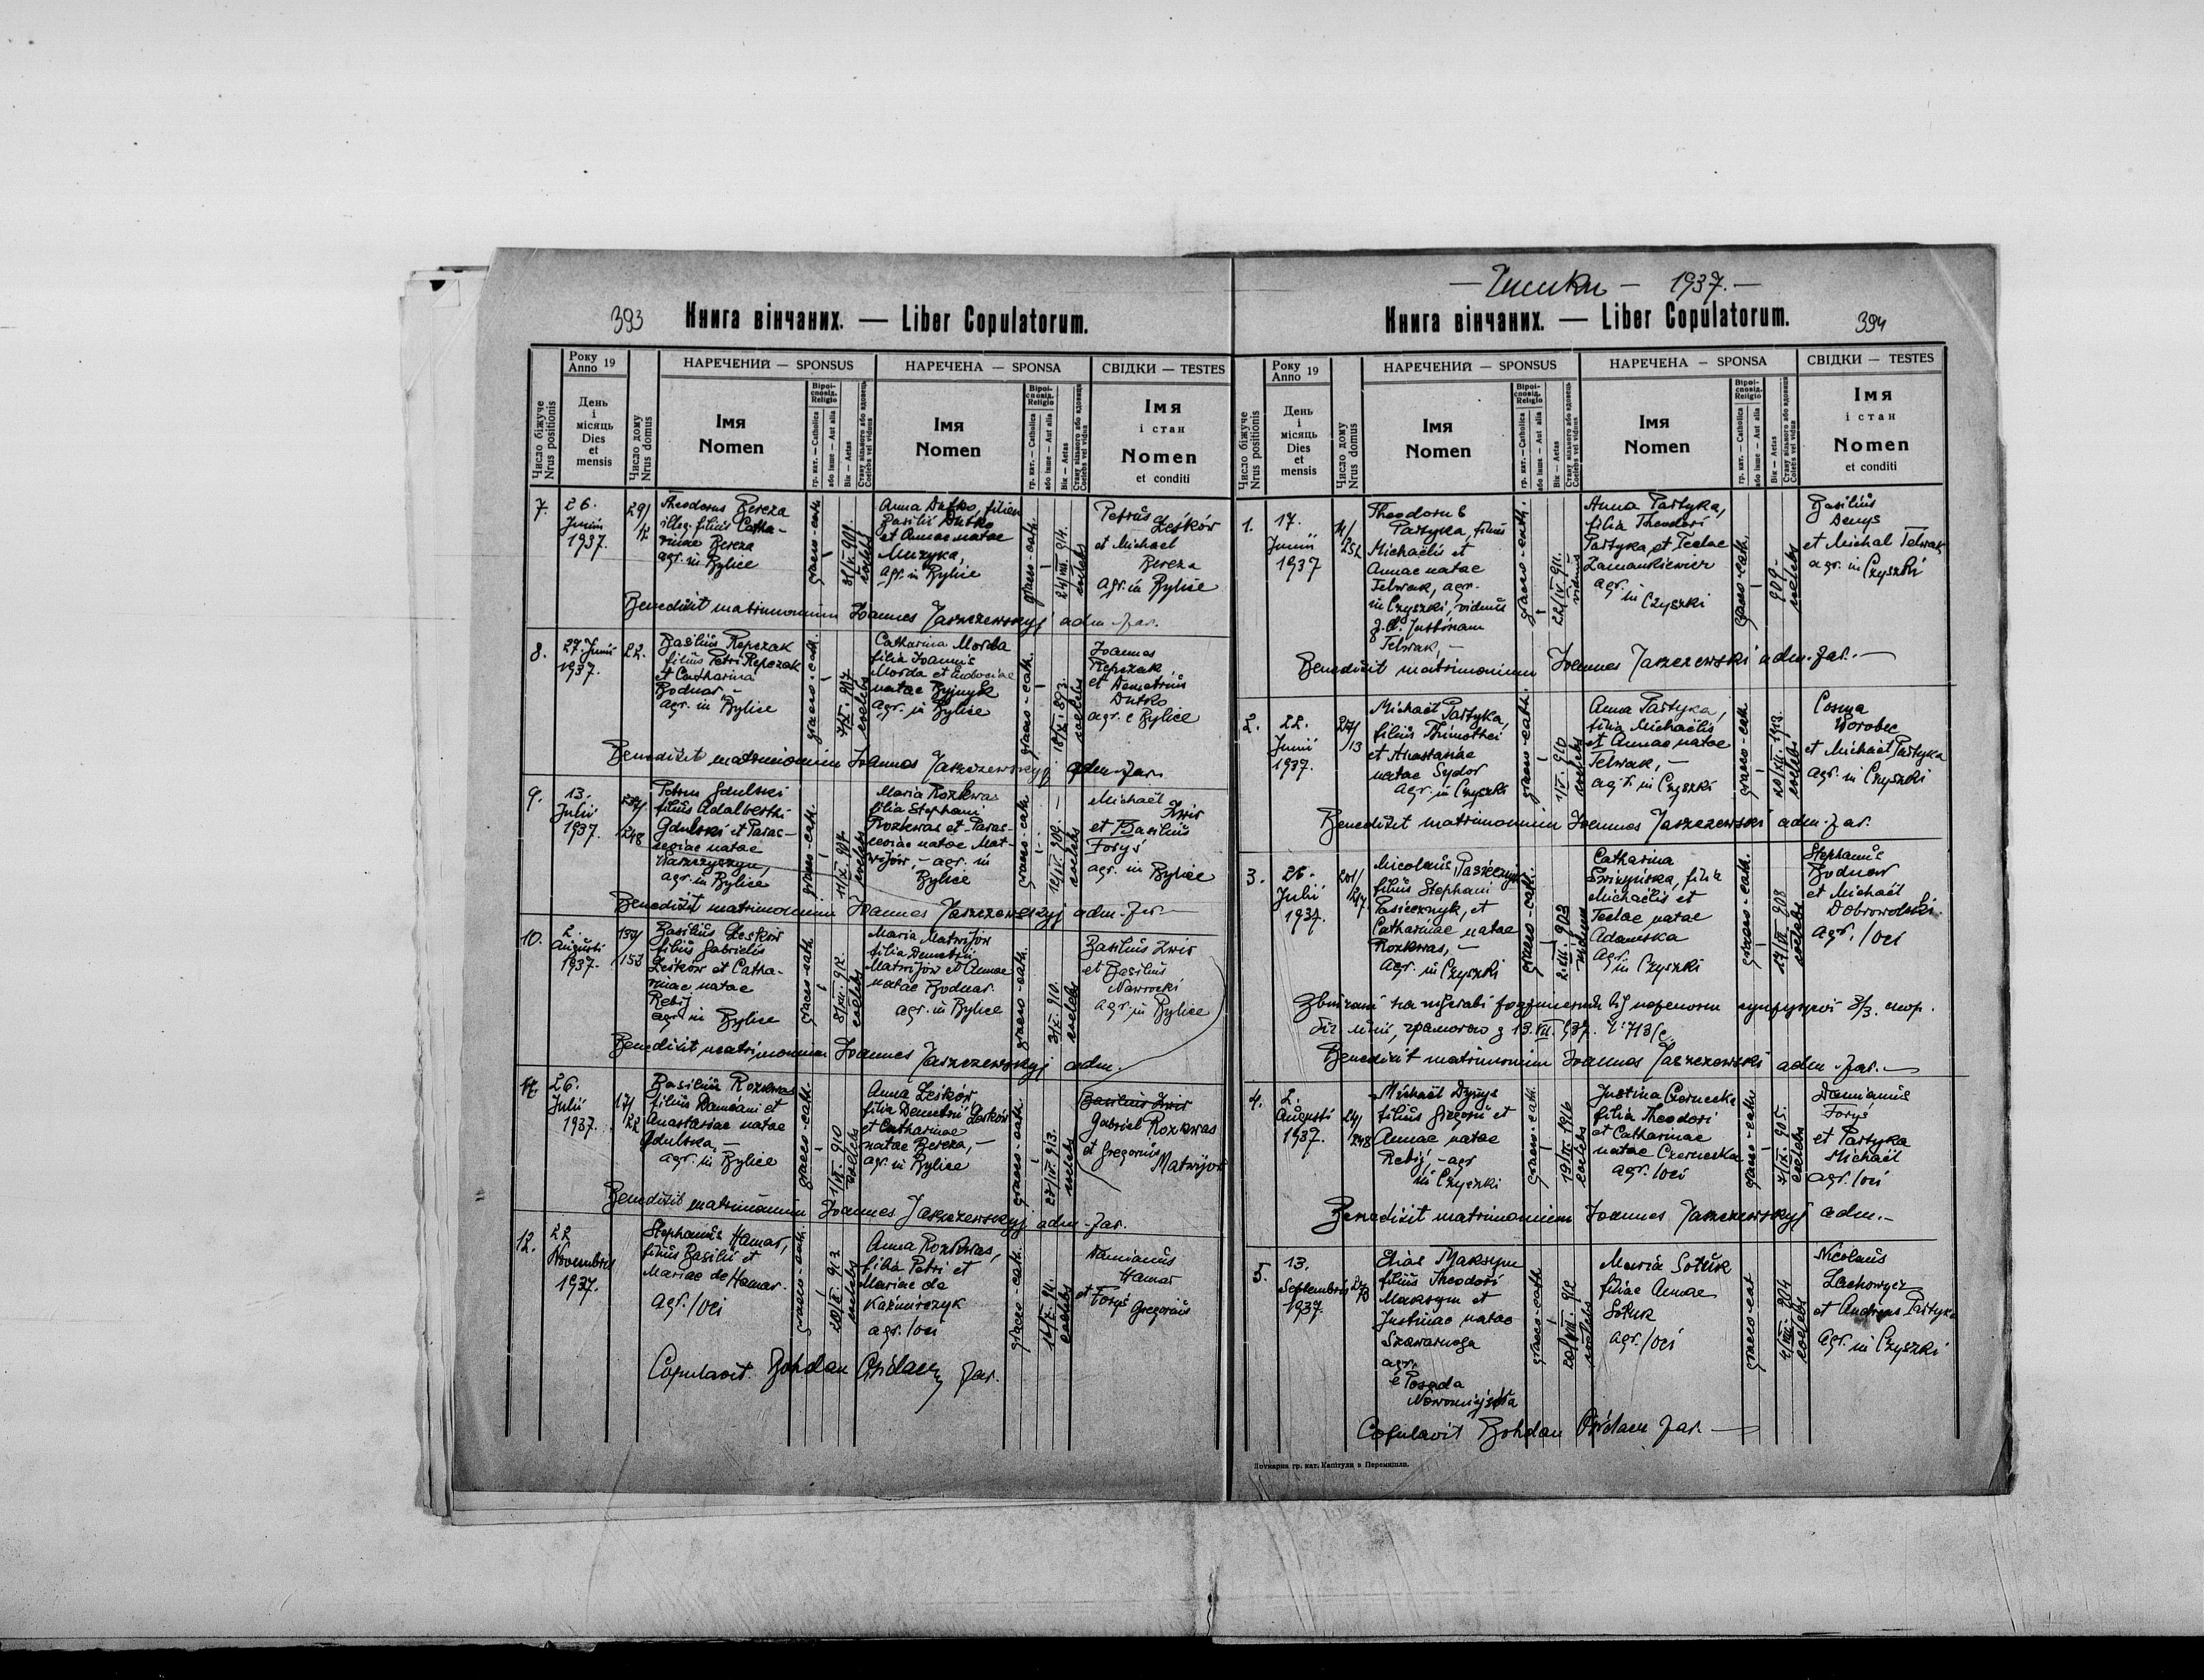 393
Книга вінчаних. — Liber Copulatorum.
Число біжуче
Nrus positionis
Року 19
Anno
День
і
місяць
Dies
et
mensis
Число дому
Nrus domus
НАРЕЧЕНИЙ — SPONSUS
Імя
Nomen
Віроі-
сповід.
Religio
гр. кат. — Catholica
або інше — Aut alia
Вік — Aetas
Стану вільного або вдовець
Coelebs vel viduus
НАРЕЧЕНА — SPONSA
Імя
Nomen
Віроі-
сповід.
Religio
гр. кат. — Catholica
або інше — Aut alia
Вік — Aetas
Coelebs vel vidua
СВІДКИ — TESTES
Імя
і стан
Nomen
et conditi
7.
26.
Junii
1937.
29/
Theodorus Bereza
illeg. filius Catha-
rinae Bereza
agr. in Bylice
graeco-cath.
coelebs
Anna Dutko, filia
Basilii Dutko
et Annae natae
Muzyka,
agr. in Bylice
graeco-cath.
24/VIII. 914.
coelebs
Petrus
Leśków
et Michael
Bereza
agr. in Bylice
Benedixit matrimonium Joannes Jaszczewskyj adm. par.
8.
27. Junii
1937.
22.
Basilius Repczak
filius Petri Repczak
et Catharina
Bodnar, –
agr. in Bylice
graeco-cath.
coelebs
Catharina Morda
filia Joannis
Morda et Eudociae
natae
agr. in Bylice
graeco-cath.
coelebs
Joannes
Repczak
et Demetrius
Dutko
agr. e Bylice
Benedixit matrimonium Joannes Jaszczewskyj adm. par.
9.
13.
Julii
1937.
248
Petrus Gdulski
filius Adalberti
Gdulski et Paras-
ceviae natae
Waszczyszyn,
agr. in Bylice
graeco-cath.
11/X. 907
coelebs
Maria Rozkwas
filia Stephani
Rozkwas et Paras-
ceviae natae Mat-
wijów, – agr. in
Bylice
graeco-cath.
12/IV. 909.
coelebs
Michaël
Zwir
et Basilius
Foryś
agr. in Bylice
Benedixit matrimonium Joannes Jaszczewskyj adm. par. —
10.
2.
Augusti
1937.
153
Basilius Leśków
filius Gabrielis
Leśków et Catha-
rinae natae
Rebij
agr. in Bylice
graeco-cath.
coelebs
Maria Matwijów
filia Demetrii
Matwijów et Annae
natae Bodnar.
agr. in Bylice
graeco-cath.
coelebs
Basilius Zwir
et Basilius
Nawrocki
agr. in Bylice
Benedixit matrimonium Joannes Jaszczewskyj adm.
26.
Julii
1937.
22
Basilius Rozkwas
filius Damiani et
Anastasiae natae
Gdulska, –
agr. in Bylice
graeco-cath.
coelebs
Anna Leśków,
filia Demetrii Leśków
et Catharinae
natae Bereza, –
agr. in Bylice
graeco-cath.
27/IV. 913.
coelebs
Basilius Zwir
Gabriel Rozkwas
et Gregorius
Matwijów
Benedixit matrimonium Joannes Jaszczewskyj adm. par.
12.
22
Novembris
1937.
Stephanus Hamar,
filius Basilii et
Mariae de Hamar.
agr. loci
graeco-cath.
coelebs
Anna Rozkwas,
filia Petri et
Mariae de
Kaźmirczyk
agr. loci
graeco-cath.
coelebs
Damianus
Hamar
et Foryś
Gregorius
Copulavit Bohdan par.
— Чишки — 1937. —
Книга вінчаних. — Liber Copulatorum.
394
Число біжуче
Nrus positionis
Року 19
Anno
День
і
місяць
Dies
et
mensis
Число дому
Nrus domus
НАРЕЧЕНИЙ — SPONSUS
Імя
Nomen
Віроі-
сповід.
Religio
гр. кат. — Catholica
або інше — Aut alia
Вік — Aetas
Стану вільного або вдовець
Coelebs vel viduus
НАРЕЧЕНА — SPONSA
Імя
Nomen
Віроі-
сповід.
Religio
гр. кат. — Catholica
або інше — Aut alia
Вік — Aetas
Coelebs vel vidua
СВІДКИ — TESTES
Імя
і стан
Nomen
et conditi
1.
17.
Junii
1937
252
Theodorus
Partyka, filius
Michaelis et
Annae natae
Telwak, agr.
in Czyszki, viduus
Justinam
Telwak, –
graeco-cath.
22/IV 911.
viduus
Anna Partyka,
filia Theodori
Partyka, et Teclae
Zamankiewicz
agr.
in Czyszki
graeco-cath.
909.
coelebs
Basilius
Denys
et Michal Telwak
agr. in Czyszki
Benedixit matrimonium Joannes Jaszczewski adm. par. —
2.
22.
Junii
1937.
13
Michaël Partyka,
filius Thimothei
et Anastasiae
natae Sydor
agr. in Czyszki
graeco-cath.
1/V. 910
coelebs
Anna Partyka,
filia Michaëlis
et Annae natae
Telwak, –
agr. in Czyszki
graeco-cath.
20/XII. 1913.
coelebs
Cosma
Worobec
et Michaël Partyka
agr. in Czyszki
Benedixit matrimonium Joannes Jaszczewski adm. par.
3.
26.
Julii
1937.
Nicolaus Pasiecznyk
filius Stephani
Pasiecznyk, et
Catharinae natae
Rozkwas, –
agr. in Czyszki
graeco-cath.
903
viduus
Catharina
filia
Michaëlis et
Teclae natae
Adamska
agr.
in Czyszki
graeco-cath.
908
coelebs
Stephanus
Bodnar
et Michaël
Dobrowolski.
agr. loci
з 13. VII 937. Ч: 713/с
Benedixit matrimonium Joannes Jaszczewski adm. par. —
4.
2.
Augusti
1937.
248
Michaël Dzyys
filius Gregorii et
Annae natae
Rebij – agr
in Czyszki
graeco-cath.
coelebs
Justina Czernecka
filia Theodori
et Catharinae
natae Czernecka
agr. loci
graeco-cath
905.
coelebs
Damianus
Foryś
et Partyka
Michaël
agr. loci
Benedixit matrimonium Joannes Jaszczewskyj adm. –
5.
13.
Septembris
1937.
Elias Maksym
filius Theodori
Maksym et
Justinae natae
Szawarnoga
agr.
e Posada
Nowomiejska
graeco-cath
20/VIII. 912
coelebs
Maria Sołuk
filiae Annae
Sołuk
agr. loci
graeco-cat
904
coelebs
Nicolaus
Lachowycz
et Andreas Partyka
agr. in Czyszki
Copulavit Bohdan par. —
гр. кат. Капітули в Перемишли.